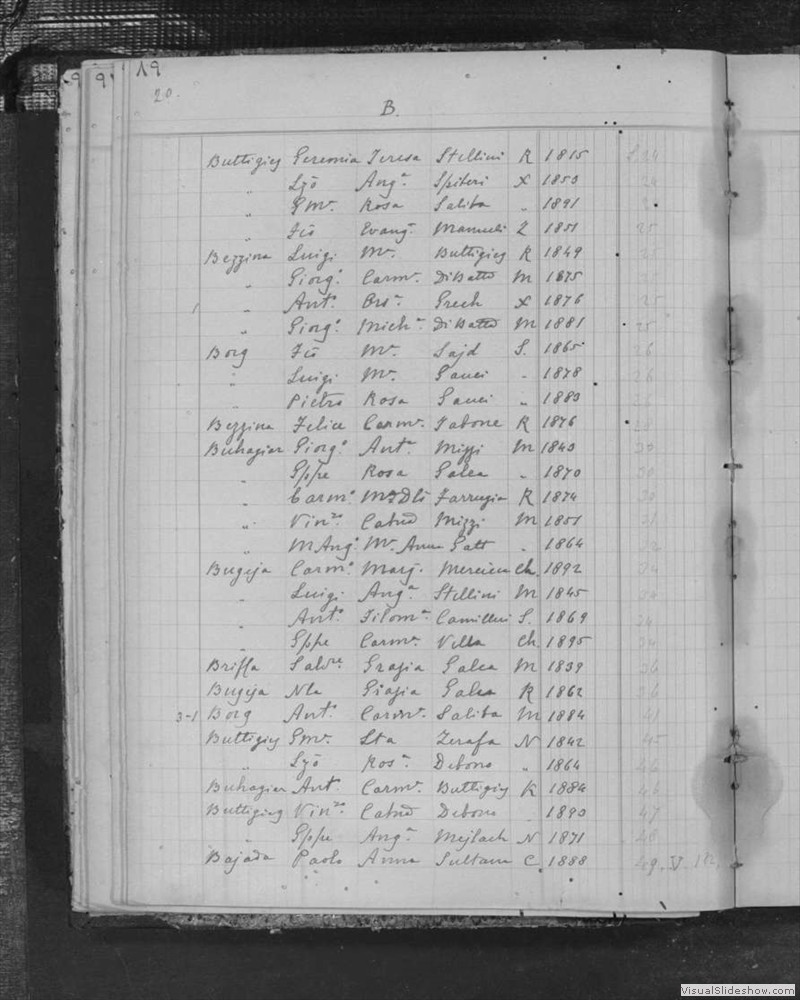 19
20.
B.
Buttigieg Geremia Teresa Stellini R 1815 24
" Lzo Ang.a Spiteri X 1853 24
" Gmr. Rosa Saliba " 1891
" Fco Evang. Mamueli Z 1851 25
Bezzina Luigi Mr. Buttigieg R 1849 25
" Giorg.o Carmr. DiBatto M 1875 25
1 " Ant.o Ors.a Grech X 1876 25
" Giorg.o Mich.a DiBatto M 1881 25
Borg Fco Mr. Sajd S. 1865 26
" Luigi Mr. Gauci - 1878 26
" Pietro Rosa Gauci " 1883 26
Bezzina Felice Carmr. Tabone R 1876 28
Buhagiar Giorg.o Ant.a Mizzi M 1843 30
" Gppe Rosa Galea " 1870 30
" Carm.o Farrugia R 1874 30
" Vin.zo Catnd Mizzi M 1851 31
" M Ang.o Mr. Anna Gatt . 1864 32
Bugeja Carm.o Marg. Mercieca Ch. 1892 34
" Luigi Ang.a Stellini M 1845 34
" Ant.o Filom.a Camilleri S. 1869 34
" Gppe Carmr. Vella Ch. 1895 34
Briffa Salv.re Grazia Galea M 1839 36
Bugeja Nla Giazia Galea R 1862 36
3-1 Borg Ant.o Carmr. Saliba M 1884 41
Buttigieg Gmr. Sta Zerafa N 1842 45
" Lzo Ros.a Debono " 1864 46
Buhagiar Ant. Carmr. Buttigieg K 1884 46
Buttigieg Vin.zo Catnd Debono . 1890 47
" Gppe Ang.a Mejlach N 1871 48
Bajada Paolo Anna Sultana C 1888 49. V.
VisualSlideshow.com